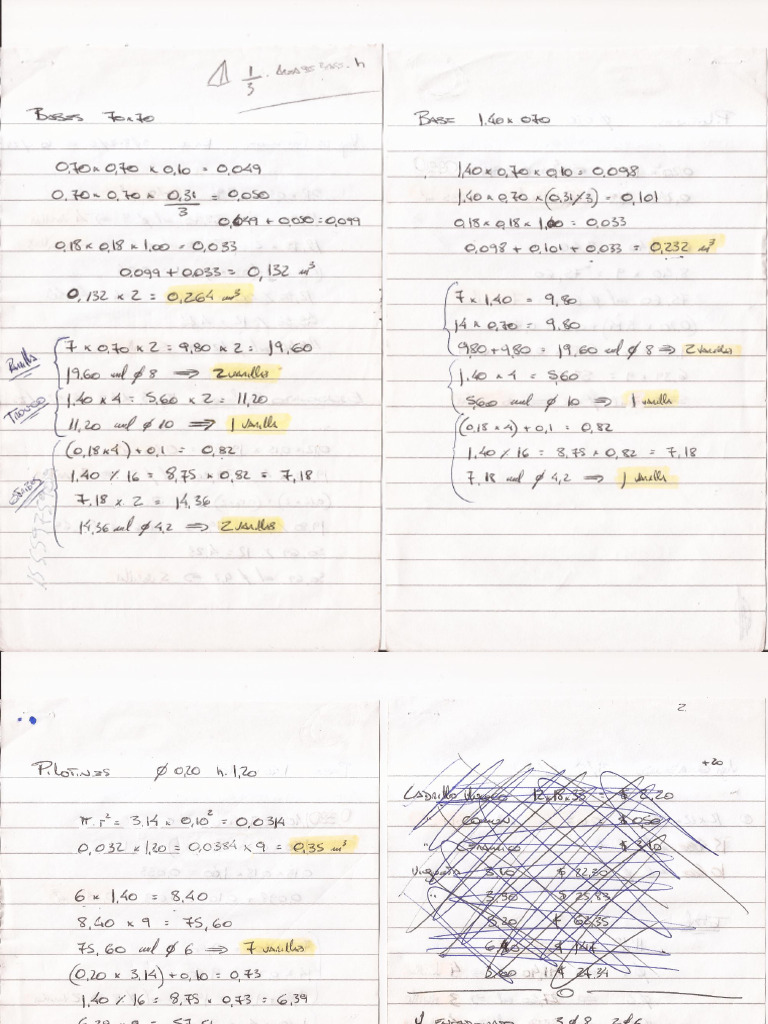 1/3 . h
Bases 70x70
0,70 x 0,70 x 0,10 = 0,049
0,70 x 0,70 x 0,31/3 = 0,050
0,049 + 0,050 = 0,099
0,18 x 0,18 x 1,00 = 0,033
0,099 + 0,033 = 0,132 m³
0,132 x 2 = 0,264 m³
Parrilla
7 x 0,70 x 2 = 9,80 x 2 = 19,60
19,60 ml ø 8 ⇒ 2 varillas
Tronco
1,40 x 4 = 5,60 x 2 = 11,20
11,20 ml ø 10 ⇒ 1 varilla
Estribos
(0,18 x 4) + 0,1 = 0,82
1,40 % 16 = 8,75 x 0,82 = 7,18
7,18 x 2 = 14,36
14,36 ml ø 4,2 ⇒ 2 varillas
Base 1,40 x 0,70
1,40 x 0,70 x 0,10 = 0,098
1,40 x 0,70 x (0,31/3) = 0,101
0,18 x 0,18 x 1,00 = 0,033
0,098 + 0,101 + 0,033 = 0,232 m³
7 x 1,40 = 9,80
14 x 0,70 = 9,80
9,80 + 9,80 = 19,60 ml ø 8 ⇒ 2 varillas
1,40 x 4 = 5,60
5,60 ml ø 10 ⇒ 1 varilla
(0,18 x 4) + 0,1 = 0,82
1,40 % 16 = 8,75 x 0,82 = 7,18
7,18 ml ø 4,2 ⇒ 1 varilla
Pilotines ø 0,20 h. 1,20
π.r² = 3,14 x 0,10² = 0,0314
0,032 x 1,20 = 0,0384 x 9 = 0,35 m³
6 x 1,40 = 8,40
8,40 x 9 = 75,60
75,60 ml ø 6 ⇒ 7 varillas
(0,20 x 3,14) + 0,10 = 0,73
1,40 % 16 = 8,75 x 0,73 = 6,39
6,39 x 9 = 57,51
2
+20
Ladrillo Hueco 12x18x33 $ 8,20
" Comun
" Ceramico
Vigueta
3 ø 8 2 ø 6